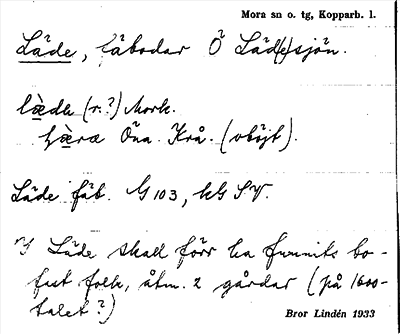 Mora sn o. tg, Kopparb. l.
Läde, fäbodar Ö Läd(e)sjön.
lædẹ (r.?) Mork.
hæræ Öna. Krå. (oböjt).
Läde fäb. G 103, kG SV.
Läde skall förr ha funnits bo-
fast folk, åtm. 2 gårdar (på 1600-
talet?)
Bror Lindén 1933